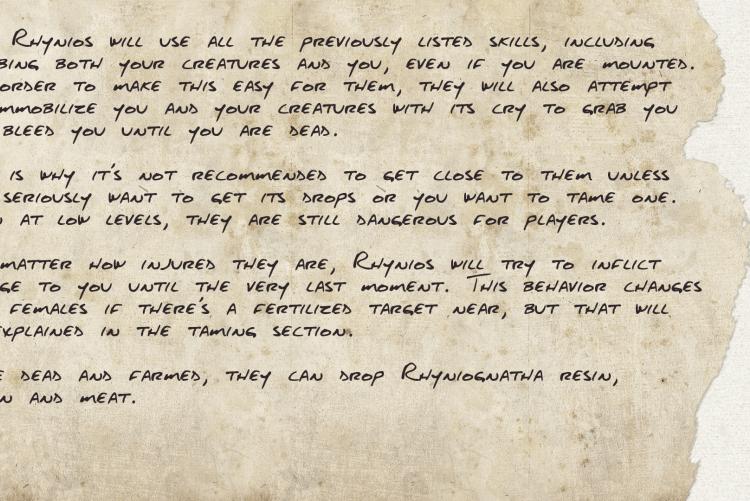 Rhynios will use all the previously listed skills, including
bing both your creatures and you, even if you are mounted.
order to make this easy for them, they will also attempt
mmobilize you and your creatures with its cry to grab you
bleed you until you are dead.
is why it's not recommended to get close to them unless
seriously want to get its drops or you want to tame one.
at low levels, they are still dangerous for players.
matter how injured they are, Rhynios will try to inflict
ge to you until the very last moment. This behavior changes
females if there's a fertilized target near, but that will
explained in the taming section.
e dead and farmed, they can drop Rhyniognatha resin,
n and meat.